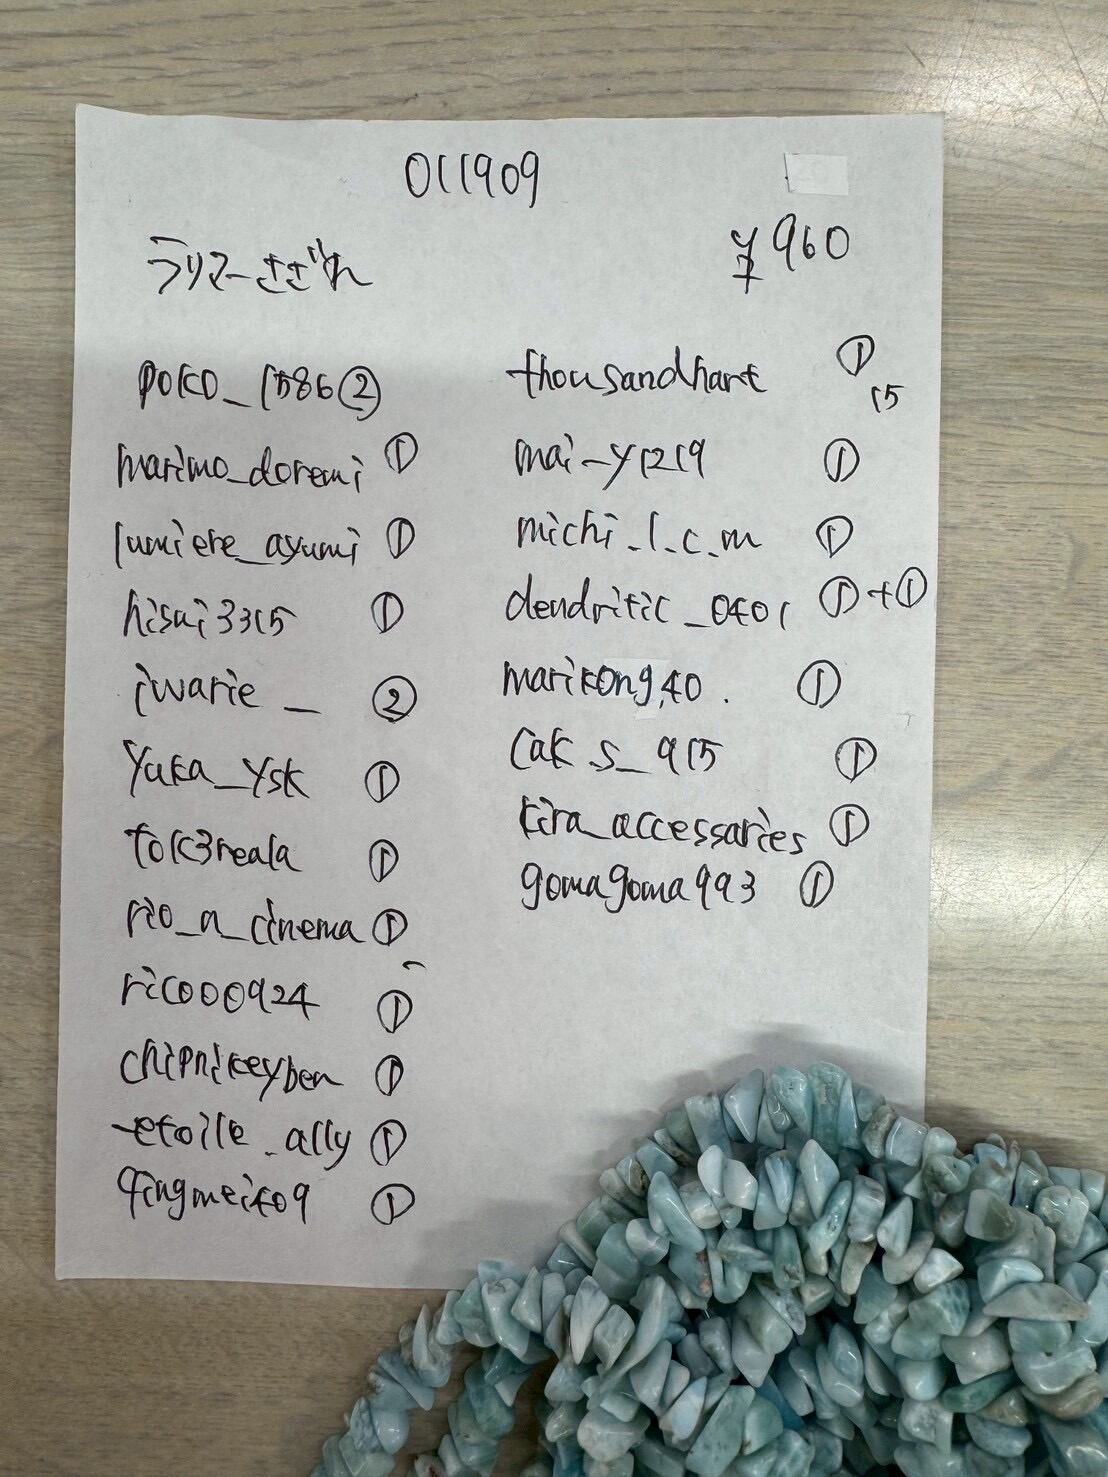 011909
¥960
ラリマーさざれ
poko_1586②
marimo_doremi ①
lumiere_ayumi ①
hisui3315 ①
iwarie_ ②
yuka_ysk ①
tok3reala ①
rio_a_cinema ①
rico00924 ①
chipnikeyben ①
etoille_ally ①
qingmeiko9 ①
thousandhart ①
15
mai-y1219 ①
michi.l.c.m ①
dendritic_0401 ①+①
marikong40. ①
cak.s_915 ①
kira_accessaries ①
gomagoma993 ①